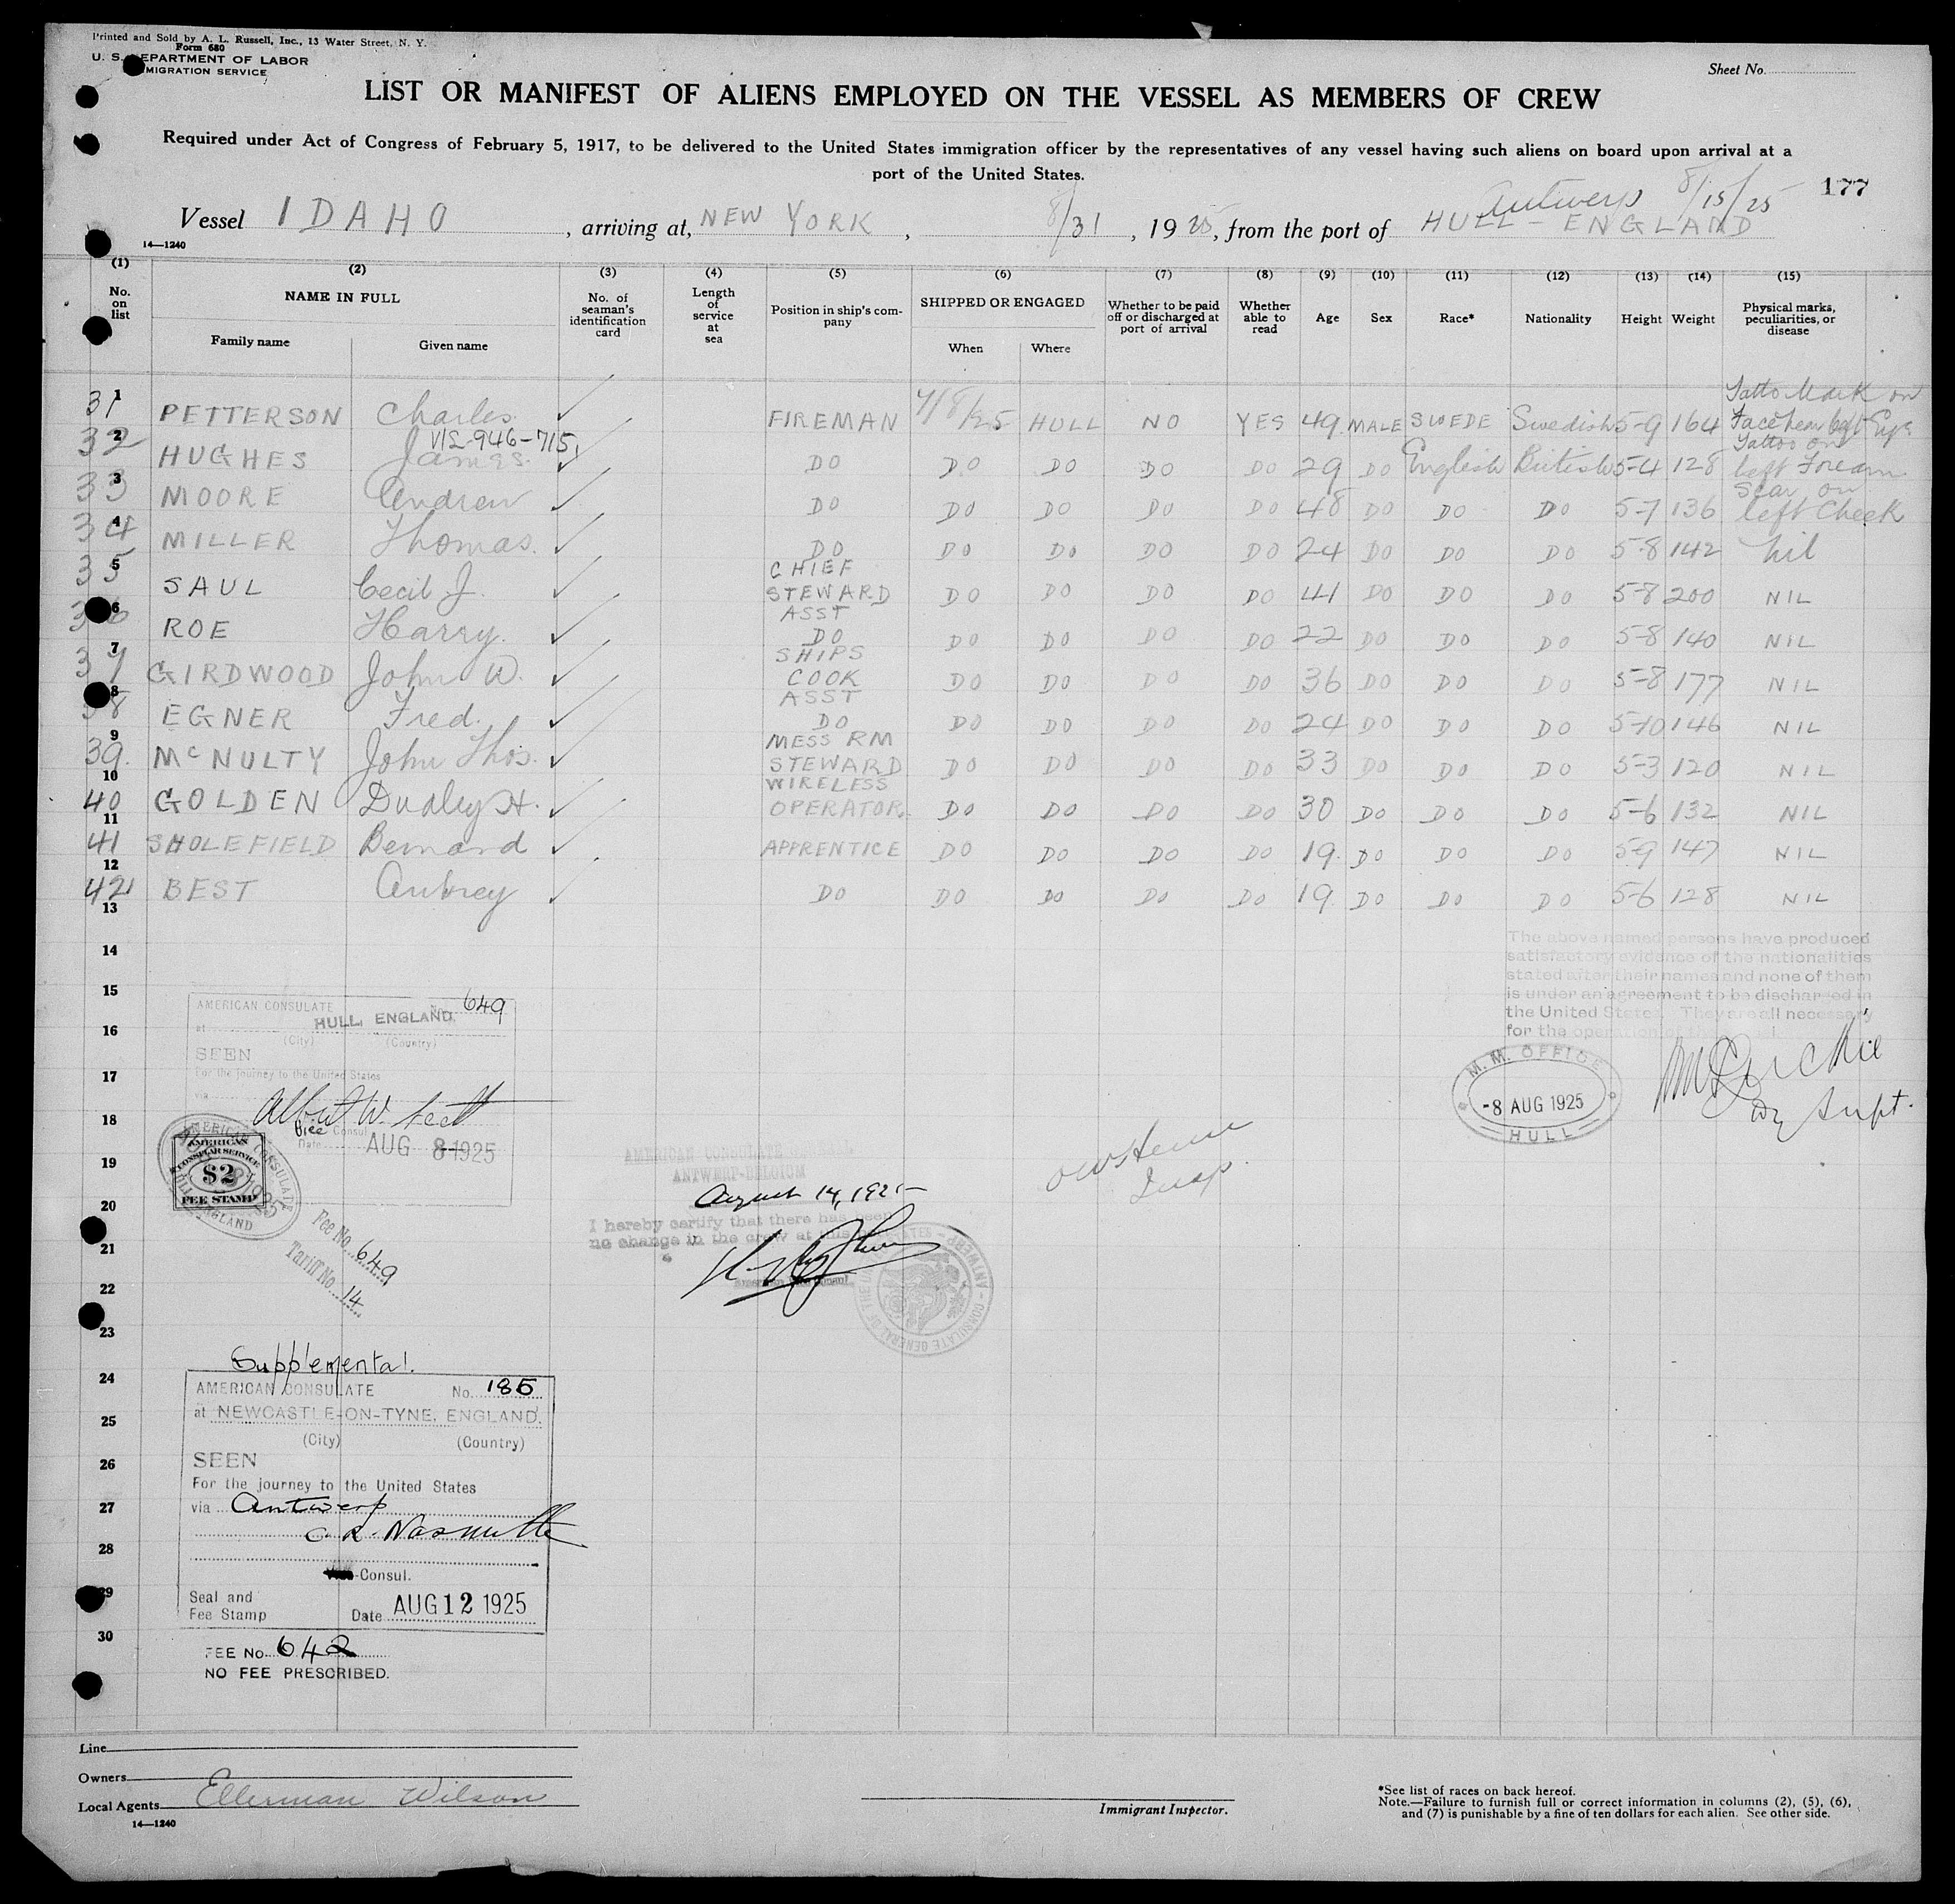 Printed and Sold by A. L. Russell, Inc., 13 Water Street, N. Y.
Form 680
U. S. DEPARTMENT OF LABOR
IMMIGRATION SERVICE
Sheet No.
LIST OR MANIFEST OF ALIENS EMPLOYED ON THE VESSEL AS MEMBERS OF CREW
Required under Act of Congress of February 5, 1917, to be delivered to the United States immigration officer by the representatives of any vessel having such aliens on board upon arrival at a
port of the United States.
177
Antwerp 8/15/25
Vessel IDAHO, arriving at, NEW YORK, 8/31, 1925, from the port of HULL - ENGLAND
14—1240
(1) (2) (3) (4) (5) (6) (7) (8) (9) (10) (11) (12) (13) (14) (15)
No. on list NAME IN FULL Family name Given name No. of seaman's identification card Length of service at sea Position in ship's company SHIPPED OR ENGAGED When Where Whether to be paid off or discharged at port of arrival Whether able to read Age Sex Race* Nationality Height Weight Physical marks, peculiarities, or disease
31 1 PETTERSON Charles. ✓ FIREMAN 7/8/25 HULL NO YES 49 MALE SWEDE Swedish 5-9 164 Tatto Mark on Face near left Eye
V/L-946-715
32 2 HUGHES James. ✓ DO DO DO DO DO 29 DO English British 5-4 128 Tattoo on left Forearm
33 3 MOORE Andrew ✓ DO DO DO DO DO 48 DO DO DO 5-7 136 Scar on left Cheek
34 4 MILLER Thomas. ✓ DO DO DO DO DO 24 DO DO DO 5-8 142 Nil
35 5 SAUL Cecil J. ✓ CHIEF STEWARD DO DO DO DO 41 DO DO DO 5-8 200 NIL
36 6 ROE Harry. ✓ ASST DO DO DO DO DO 22 DO DO DO 5-8 140 NIL
37 7 GIRDWOOD John W. ✓ SHIPS COOK DO DO DO DO 36 DO DO DO 5-8 177 NIL
38 8 EGNER Fred. ✓ ASST DO DO DO DO DO 24 DO DO DO 5-10 146 NIL
39. 9 McNULTY John Thos. ✓ MESS RM STEWARD DO DO DO DO 33 DO DO DO 5-3 120 NIL
40 10 GOLDEN Dudley H. ✓ WIRELESS OPERATOR. DO DO DO DO 30 DO DO DO 5-6 132 NIL
41 11 SHOLEFIELD Bernard ✓ APPRENTICE DO DO DO DO 19. DO DO DO 5-9 147 NIL
42 12 BEST Aubrey ✓ DO DO DO DO DO 19. DO DO DO 5-6 128 NIL
13
14
15
16
17
18
19
20
21
22
23
24
25
26
27
28
29
30
The above named persons have produced
satisfactory evidence of the nationalities
stated after their names and none of them
is under an agreement to be discharged in
the United States. They are all necessary
for the operation of the
M. M. OFFICE
-8 AUG 1925
HULL
Supt.
AMERICAN CONSULATE No. 649
at HULL, ENGLAND.
(City) (Country)
SEEN
For the journey to the United States
via
Albert W. Scott
Vice Consul
Date AUG 8-1925
AMERICAN CONSULATE
HULL, ENGLAND
AMERICAN
CONSULAR SERVICE
$2
FEE STAMP
Fee No. 649
Tariff No. 14
AMERICAN CONSULATE GENERAL,
ANTWERP-BELGIUM
August 14, 1925
I hereby certify that there has been
no change in the crew at this
American Vice Consul
Insp.
Supplemental.
AMERICAN CONSULATE No. 185
at NEWCASTLE-ON-TYNE, ENGLAND.
(City) (Country)
SEEN
For the journey to the United States
via Antwerp
-Consul.
Seal and
Fee Stamp Date AUG 12 1925
FEE No. 642
NO FEE PRESCRIBED.
Line
Owners
Local Agents Ellerman Wilson
14—1240
Immigrant Inspector.
*See list of races on back hereof.
Note.—Failure to furnish full or correct information in columns (2), (5), (6),
and (7) is punishable by a fine of ten dollars for each alien. See other side.